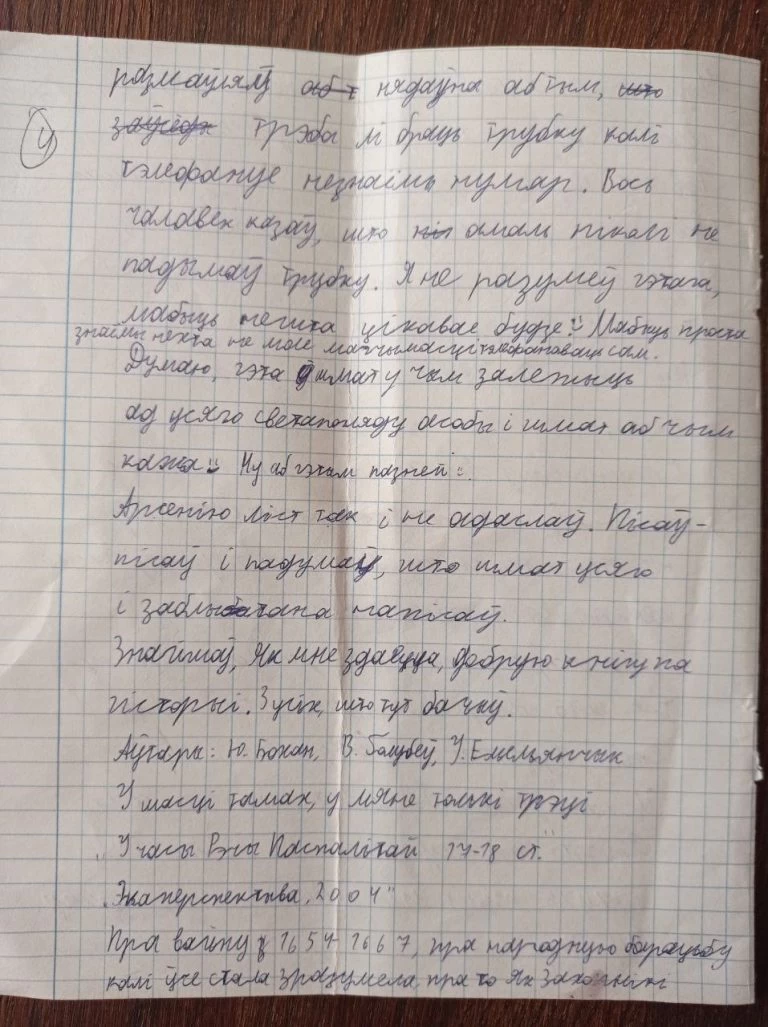 4
размаўляў аб т нядаўна аб тым, што
заўсёды трэба лі браць трубку калі
тэлефануе незнаёмы нумар. Вось
чалавек казаў, што ніг амаль ніколі не
падымаў трубку. Я не разумеў гэтага,
мабыць нешта цікавае будзе :) Мабыць проста
знаёмы нехта не мае магчымасці тэлефанаваць сам.
Думаю, гэта ў шмат у чым залежыць
ад усяго светапогляду асобы і шмат аб чым
кажа :) Ну аб гэтым пазней :.
Арсенію ліст так і не адаслаў. Пісаў-
пісаў і падумаў, што шмат усяго
і заблытана напісаў.
Знайшоў, як мне здаецца, добрую кнігу па
гісторыі. З усіх, што тут бачыў.
Аўтары: Ю. Бохан, В. Голубеў, У. Емельянчык
У шасці тамах, у мяне толькі трэці
"У часы Рэчы Паспалітай 17-18 ст."
"Экаперспектыва, 2004"
Пра вайну у 1654-1667, пра народную барацьбу
калі ўжо стала зразумела, пра то як захопнікі